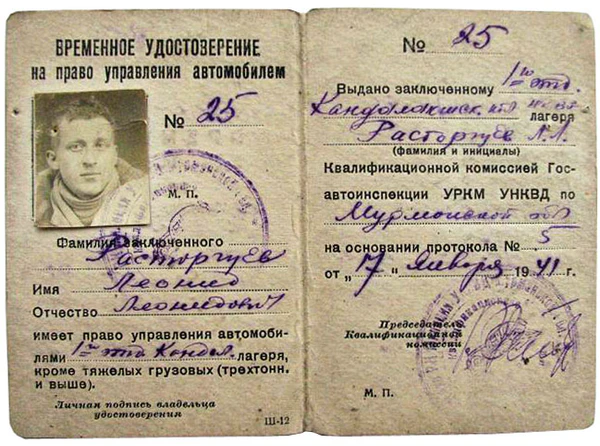 ВРЕМЕННОЕ УДОСТОВЕРЕНИЕ
на право управления автомобилем
№ 25
М. П.
Фамилия заключенного
Расторгуев
Имя Леонид
Отчество Леонидович
имеет право управления автомоби-
лями 1го отд Кандал. лагеря,
кроме тяжелых грузовых (трехтонн.
и выше).
Личная подпись владельца
удостоверения
Ш-12
№ 25
Выдано заключенному 1го отд.
Кандалакшск лагеря
Расторгуев Л.Л.
(фамилия и инициалы)
Квалификационной комиссией Гос-
автоинспекции УРКМ УНКВД по
Мурманской обл
на основании протокола № 5
от „7" января 1941 г.
Председатель
Квалификационной
комиссии
М. П.